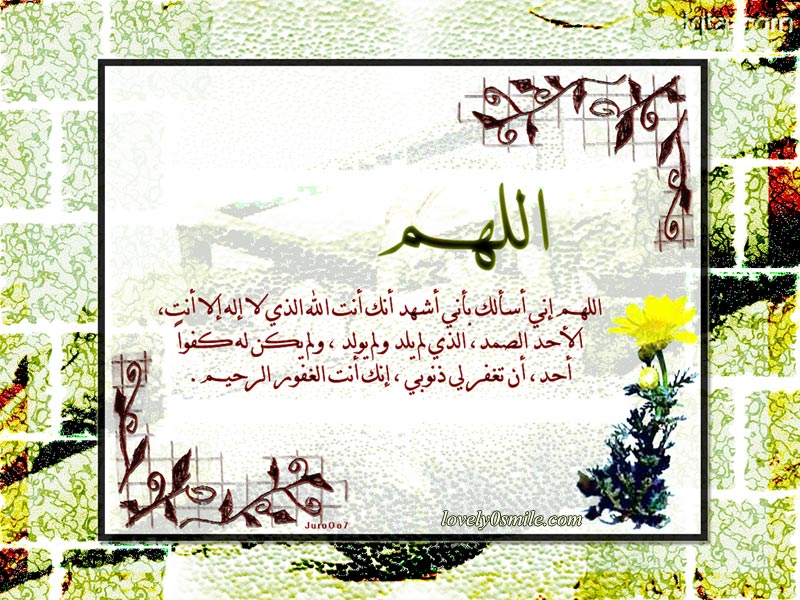 اللهم
اللهم إني أسألك بأني أشهد أنك أنت الله الذي لا إله إلا أنت،
الأحد الصمد، الذي لم يلد ولم يولد، ولم يكن له كفواً
أحد، أن تغفر لي ذنوبي، إنك أنت الغفور الرحيم.
JuroOo7
lovely0smile.com